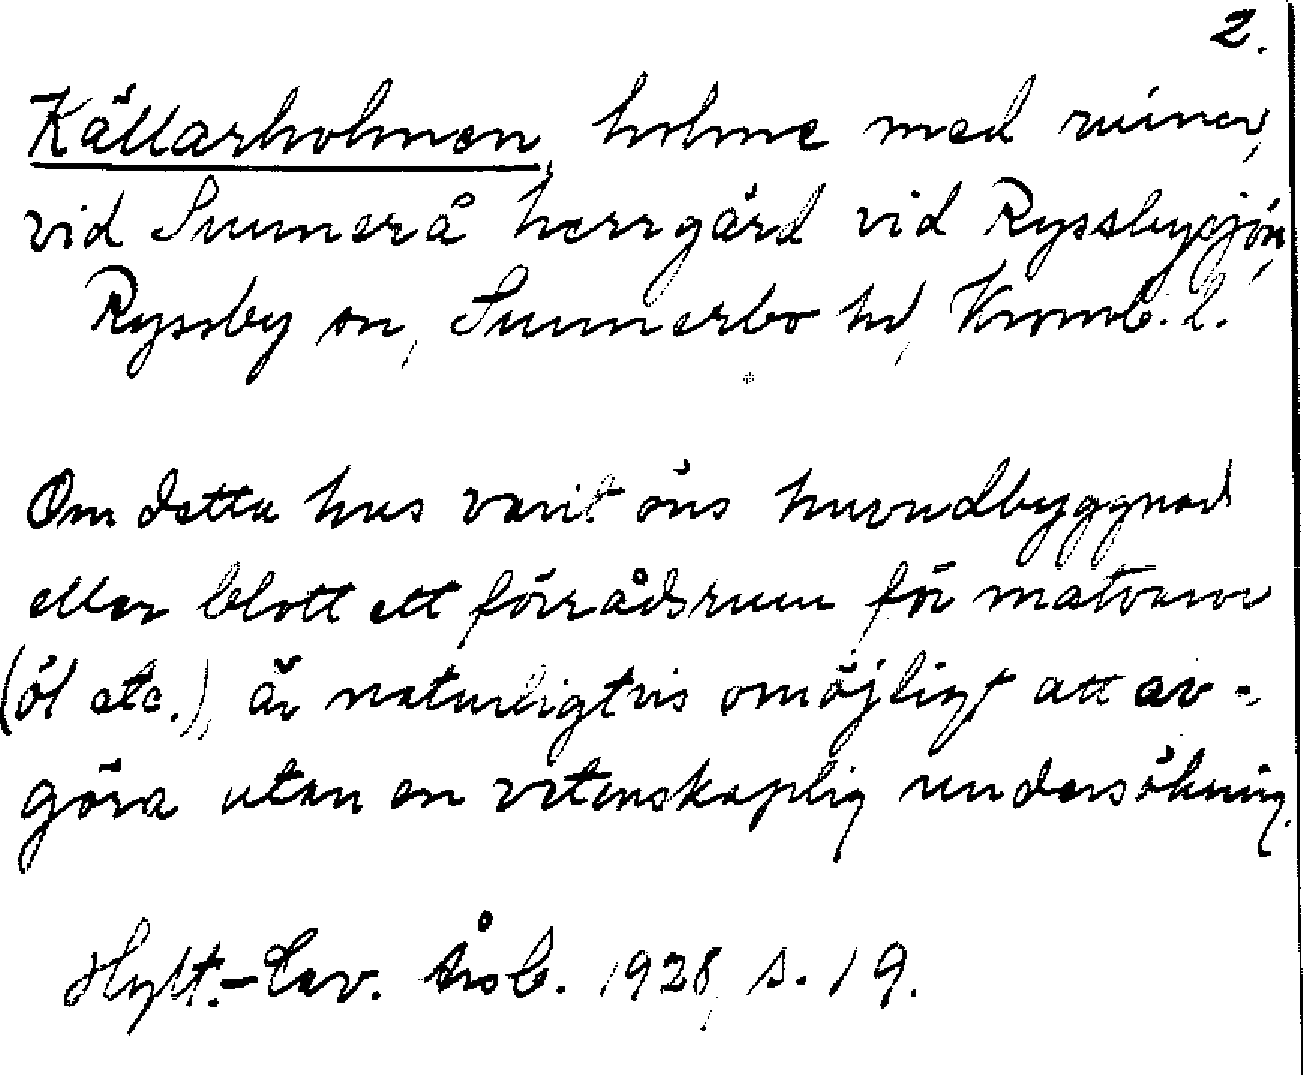 2.
Källarholmen, holme med ruiner,
vid Sunnerå herrgård vid Ryssbysjön,
Ryssby sn, Sunnerbo hd, Kronob. l.
Om detta hus varit öns huvudbyggnad
eller blott ett förrådsrum för matvaror
(öl etc.), är naturligtvis omöjligt att av-
göra utan en vetenskaplig undersökning.
Hylt.-Cav. årsb. 1928, s. 19.